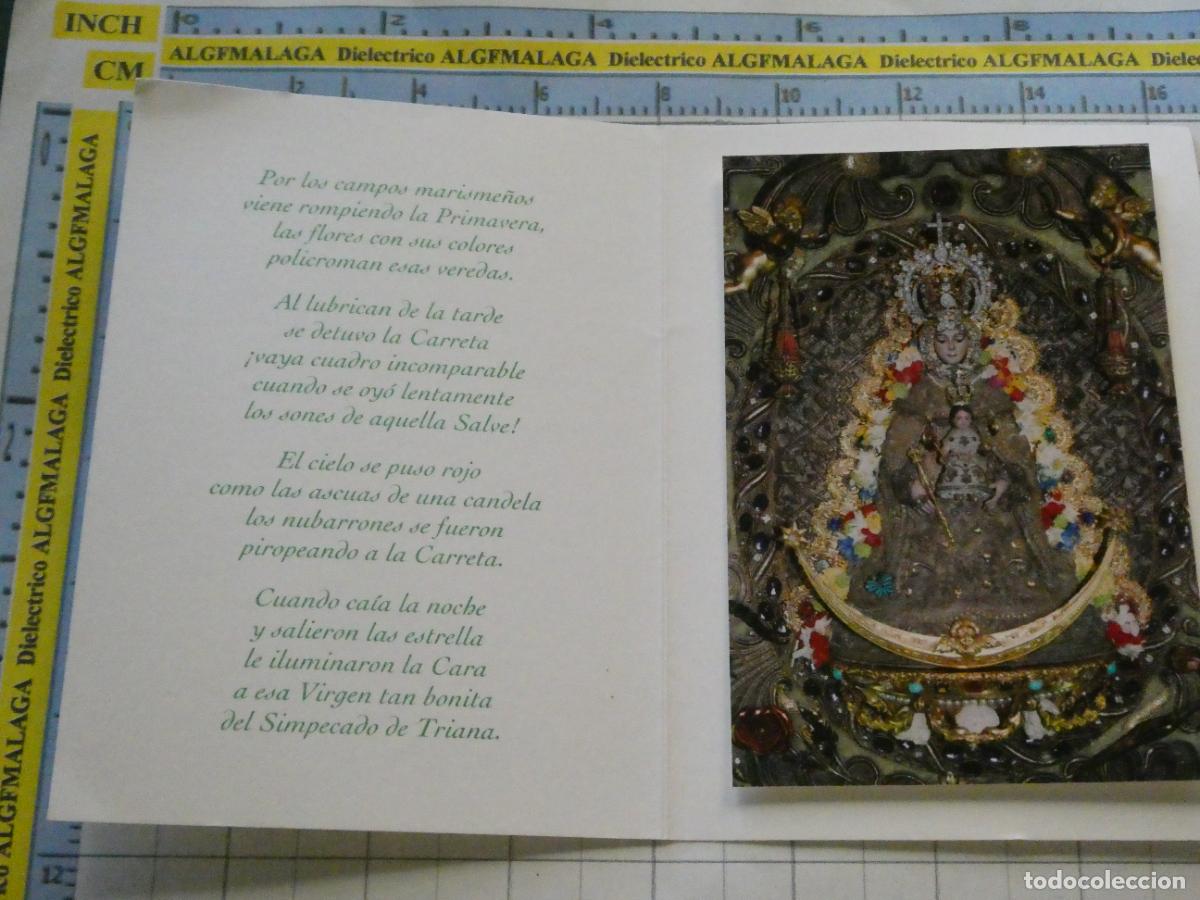 INCH 0 2 4 6 8
ALGFMALAGA Dielectrico ALGFMALAGA Dielectrico ALGFMALAGA Dielectrico ALGFMALAGA Dielec
CM 2 4 6 8 10 12 14 16
ALGFMALAGA Dielectrico ALGFMALAGA Dielectrico ALGFMALAGA Dielectrico ALGFMALAGA
12
Por los campos marismeños
viene rompiendo la Primavera,
las flores con sus colores
policroman esas veredas.
Al lubrican de la tarde
se detuvo la Carreta
¡vaya cuadro incomparable
cuando se oyó lentamente
los sones de aquella Salve!
El cielo se puso rojo
como las ascuas de una candela
los nubarrones se fueron
piropeando a la Carreta.
Cuando caía la noche
y salieron las estrella
le iluminaron la Cara
a esa Virgen tan bonita
del Simpecado de Triana.
todocoleccion